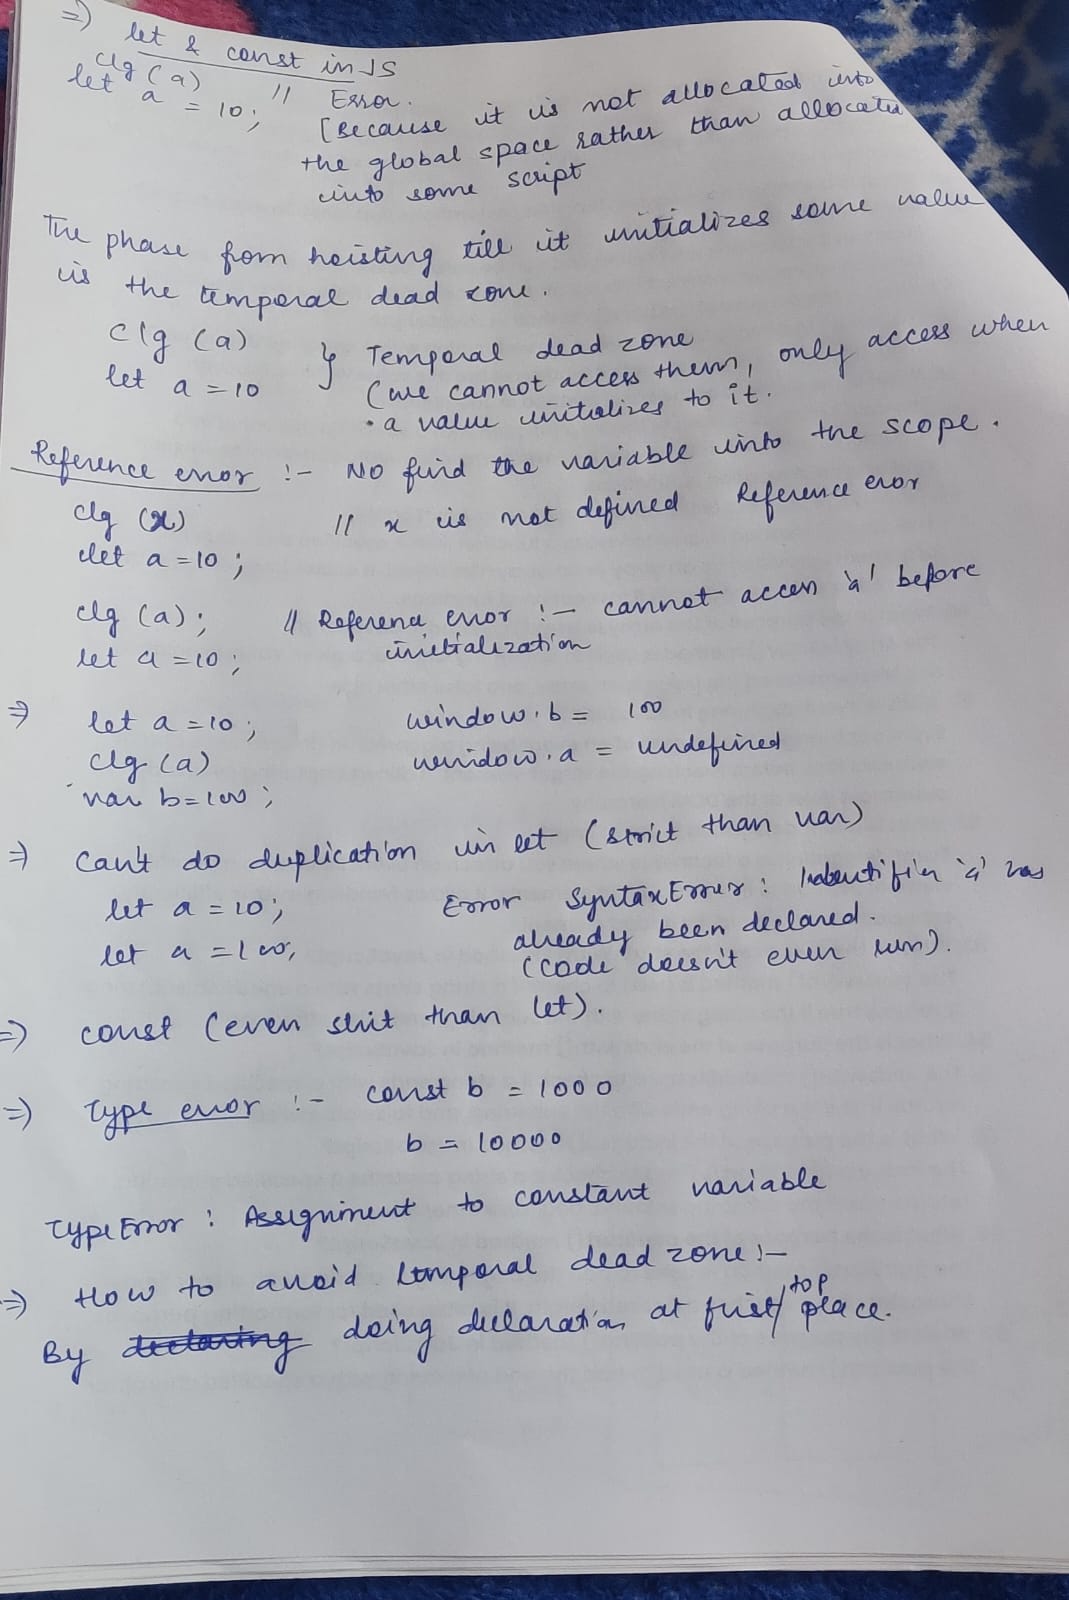 => let & const in JS
clg (a) // Error.
let a = 10; [Because it is not allocated into
the global space rather than allocated
into some script
The phase from hoisting till it initializes some value
is the temporal dead zone.
clg (a)
let a = 10 } Temporal dead zone
(we cannot access them, only access when
a value initializes to it.
Reference error :- No find the variable into the scope.
clg (x) // x is not defined Reference eror
let a = 10;
clg (a); // Reference error :- cannot access 'a' before
let a = 10; initialization
=> let a = 10; window.b = 100
clg (a) window.a = undefined
var b = 100;
=> can't do duplication in let (strict than var)
let a = 10; Error SyntaxError: 'a' has
let a = 100; already been declared.
(code doesn't even run).
=> const (even strit than let).
=> Type error :- const b = 1000
b = 10000
TypeError : Assignment to constant variable
=> How to avoid temporal dead zone :-
By declaring doing declaration at first/top place.